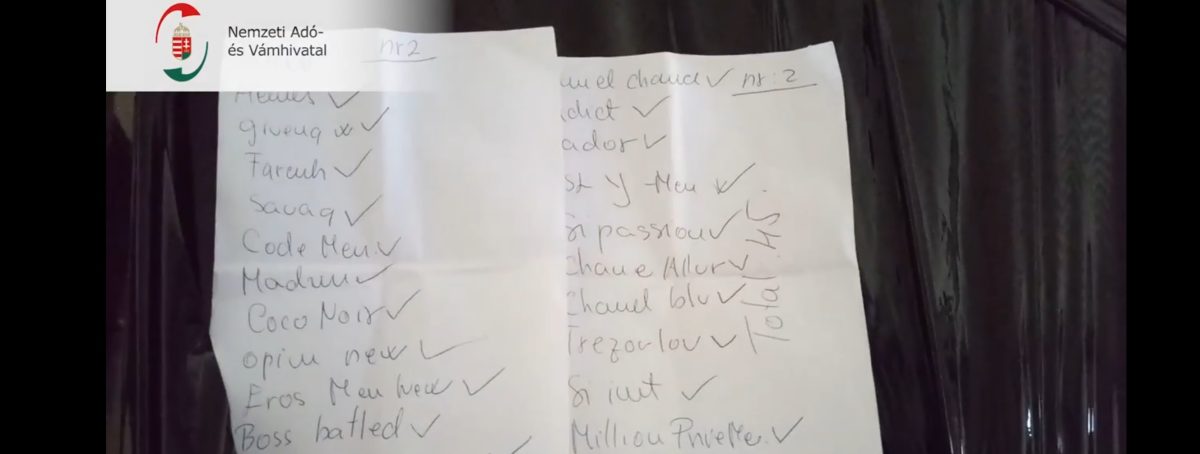 Nemzeti Adó-
és Vámhivatal
nr 2
giveng
Farenh
Savag
Code Men
Madmu
Coco Noir
opium new
Eros Men new
Boss batled
nr: 2
uuel chanel
dict
ador
st y Men
Si passion
Chane Allur
Chanel blu
Trezor lou
Si int
Million PrveMe.
Total: 45